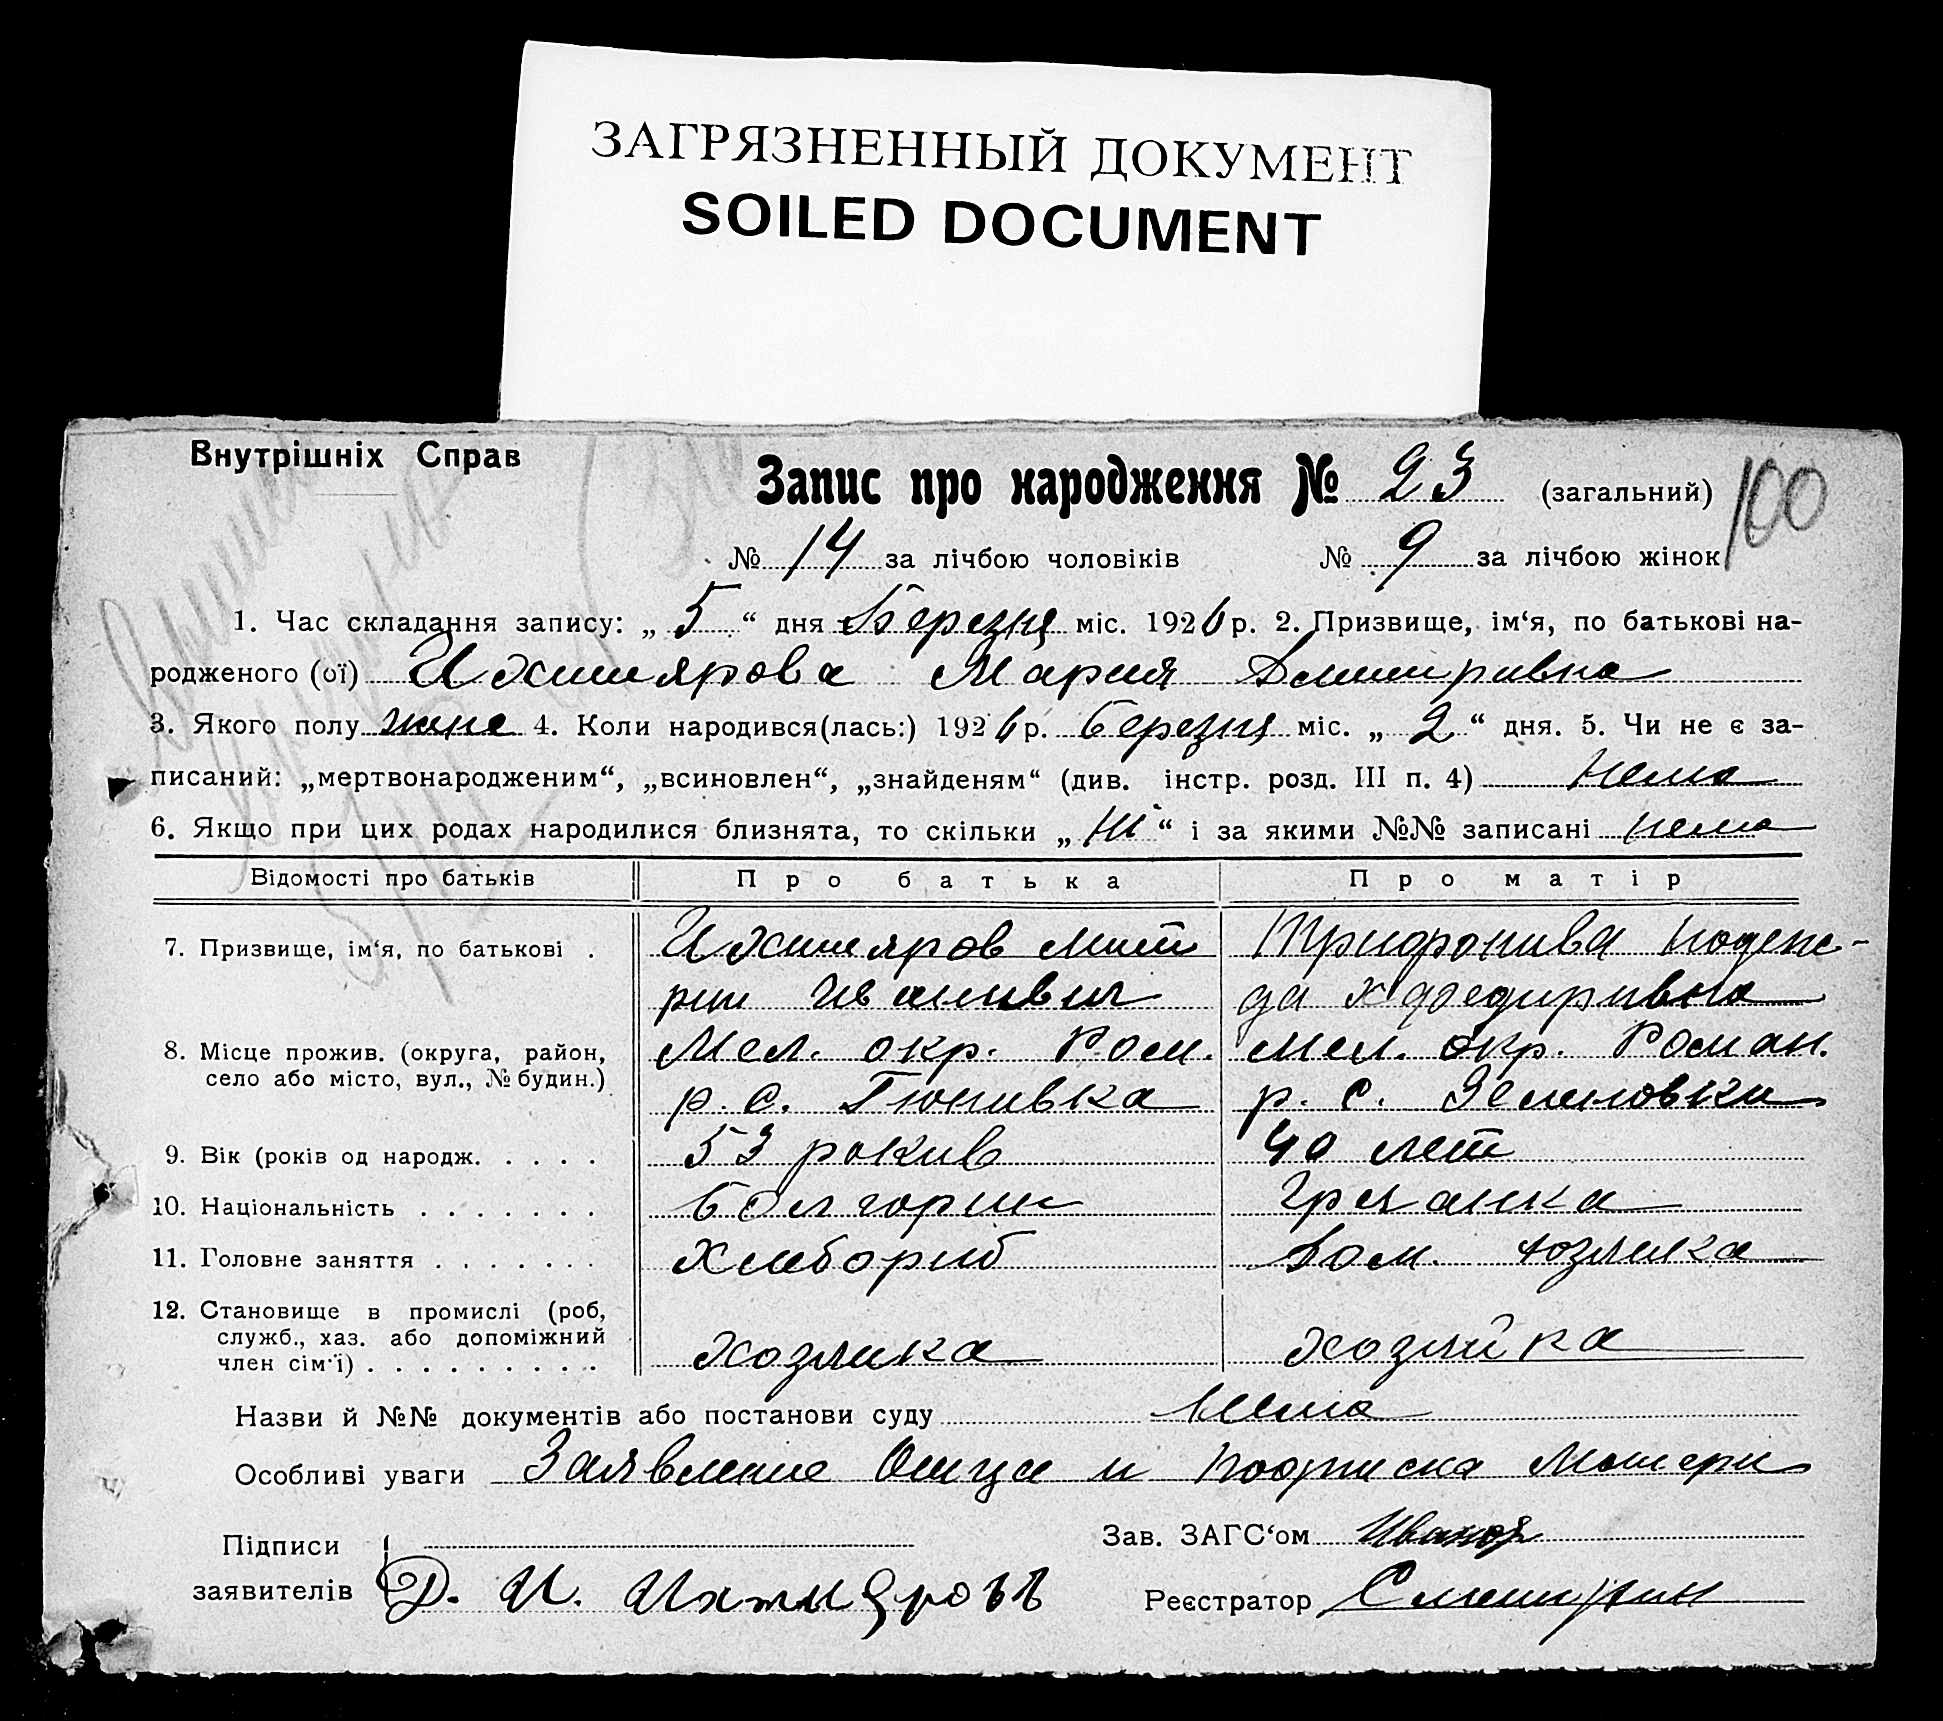 ЗАГРЯЗНЕННЫЙ ДОКУМЕНТ
SOILED DOCUMENT
Внутрішніх Справ
Запис про народження № 23 (загальний) 100
№ 14 за лічбою чоловіків № 9 за лічбою жінок
1. Час складання запису: „ 5 “ дня Березня міс. 1926 р. 2. Призвище, ім‘я, по батькові на-
родженого (ої) Ихтиярова Мария Дмитривна
3. Якого полу жине 4. Коли народився(лась:) 1926 р. березня міс. „ 2 “ дня. 5. Чи не є за-
писаний: „мертвонародженим“, „всиновлен“, „знайденям“ (див. інстр. розд. III п. 4) нема
6. Якщо при цих родах народилися близнята, то скільки „ Ні “ і за якими №№ записані нема
Відомості про батьків Про батька Про матір
7. Призвище, ім‘я, по батькові . Ихтияров Мит Трифонива Надеж-
рии Иванивич да
8. Місце прожив. (округа, район, Мел. окр. Ром. Мел. окр. Роман.
село або місто, вул., № будин.) р. с. Гюнивка р. с.
9. Вік (років од народж. . . . . . 53 рокив 40 лет
10. Національність . . . . . . . Болгорин Гречанка
11. Головне заняття . . . . . . . Хлебориб Дом. хозяйка
12. Становище в промислі (роб,
служб., хаз. або допоміжний
член сім‘ї) . . . . . . . . . . хозяика хозяйка
Назви й №№ документів або постанови суду нема
Особливі уваги Заявление Отца и подписка Матери
Підписи Зав. ЗАГС‘ом Иванов
заявителів Д. И. Ихтияровъ Реєстратор